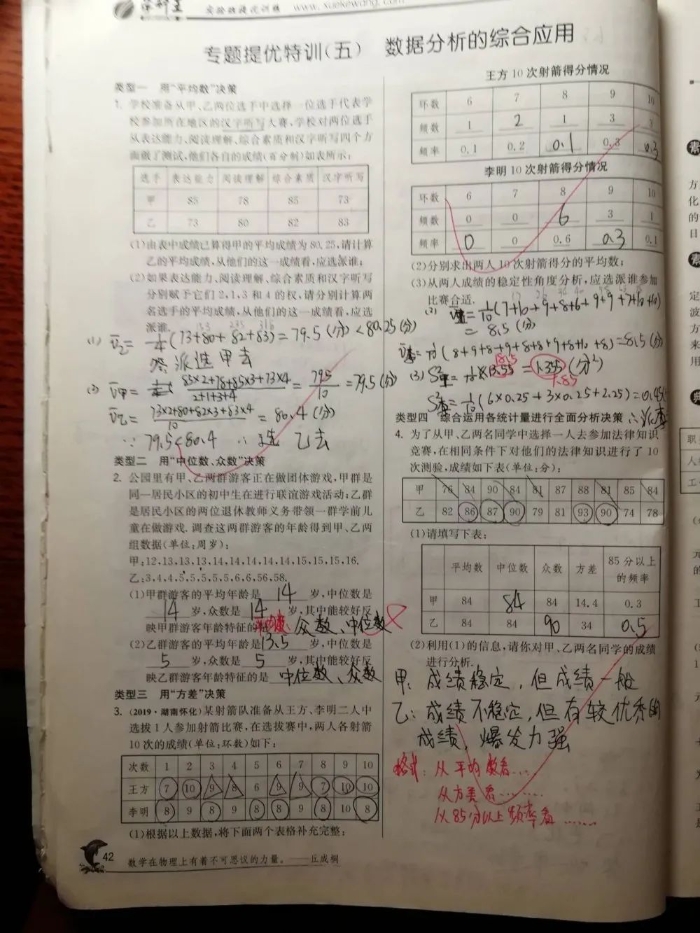 学科王 www.xuekewang.com
专题提优特训(五) 数据分析的综合应用
类型一 用“平均数”决策
1. 学校准备从甲、乙两位选手中选择一位选手代表学
校参加所在地区的汉字听写大赛,学校对两位选手
从表达能力、阅读理解、综合素质和汉字听写四个方
面做了测试,他们各自的成绩(百分制)如表所示:
选手 表达能力 阅读理解 综合素质 汉字听写
甲 85 78 85 73
乙 73 80 82 83
(1)由表中成绩已算得甲的平均成绩为80.25,请计算
乙的平均成绩,从他们的这一成绩看,应选派谁;
(2)如果表达能力、阅读理解、综合素质和汉字听写
分别赋予它们2,1,3和4的权,请分别计算两
名选手的平均成绩,从他们的这一成绩看,应选
派谁.
(1) x̄乙= 1/4 (73+80+82+83) = 79.5 (分) < 80.25 (分)
答派选甲去
(2) x̄甲= (85×2+78+85×3+73×4)/(2+1+3+4) = 795/10 = 79.5(分)
x̄乙= (73×2+80+82×3+83×4)/10 = 80.4 (分)
∵ 79.5<80.4 ∴ 选 乙去
类型二 用“中位数、众数”决策
2. 公园里有甲、乙两群游客正在做团体游戏,甲群是
同一居民小区的初中生在进行联谊游戏活动;乙群
是居民小区的两位退休教师义务带领一群学前儿
童在做游戏.调查这两群游客的年龄得到甲、乙两
组数据(单位:周岁):
甲:12,13,13,13,14,14,14,14,14,15,15,15,16.
乙:3,4,4,5,5,5,5,5,6,6,56,58.
(1)甲群游客的平均年龄是 14 岁,中位数是
14 岁,众数是 14 岁,其中能较好反
映甲群游客年龄特征的是 平均数 众数、中位数
(2)乙群游客的平均年龄是 13.5 岁,中位数是
5 岁,众数是 5 岁,其中能较好反
映乙群游客年龄特征的是 中位数、众数
类型三 用“方差”决策
3. (2019·湖南怀化)某射箭队准备从王方、李明二人中
选拔1人参加射箭比赛,在选拔赛中,两人各射箭
10次的成绩(单位:环数)如下:
次数 1 2 3 4 5 6 7 8 9 10
王方 7 10 9 8 6 9 9 7 10 10
李明 8 9 8 9 8 8 9 8 10 8
(1)根据以上数据,将下面两个表格补充完整:
42 数学在物理上有着不可思议的力量。——丘成桐
王方10次射箭得分情况
环数 6 7 8 9 10
频数 1 2 1 3 3
频率 0.1 0.2 0.1 0.3 0.3
李明10次射箭得分情况
环数 6 7 8 9 10
频数 0 0 6 3 1
频率 0 0 0.6 0.3 0.1
(2)分别求出两人10次射箭得分的平均数;
(3)从两人成绩的稳定性角度分析,应选派谁参加
比赛合适.
= 8.5 (分)
类型四 综合运用各统计量进行全面分析决策
4. 为了从甲、乙两名同学中选择一人去参加法律知识
竞赛,在相同条件下对他们的法律知识进行了10
次测验,成绩如下表(单位:分):
甲 76 84 90 84 81 87 88 81 85 84
乙 82 86 87 90 79 81 93 90 74 78
(1)请填写下表:
平均数 中位数 众数 方差 85分以上的频率
甲 84 84 84 14.4 0.3
乙 84 84 90 34 0.5
(2)利用(1)的信息,请你对甲、乙两名同学的成绩
进行分析.
甲:成绩稳定,但成绩一般
乙:成绩不稳定,但有较优秀的
成绩,爆发力强
格式:从平均数看……
从方差看……
从85分以上频率看……